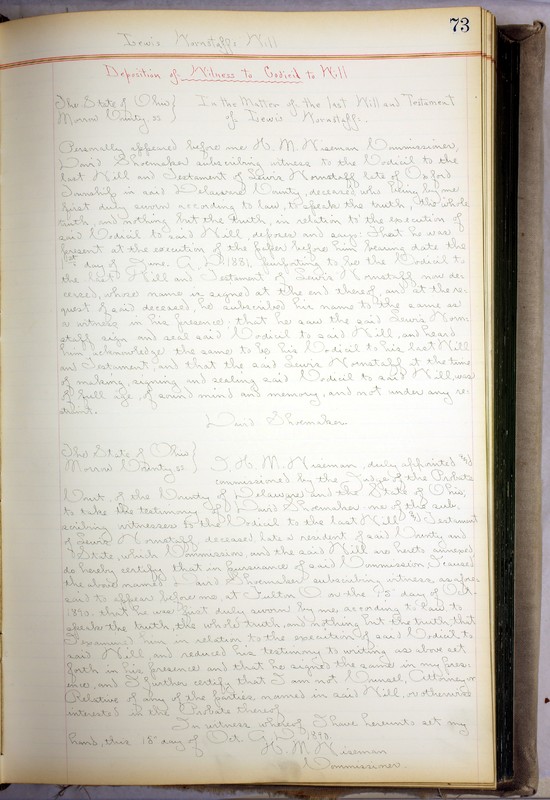 73
Lewis Wornstaff's Will
Deposition of Witness to Codicil to Will
The State of Ohio } In the Matter of the last Will and Testament
Morrow County ss } of Lewis Wornstaff.
Personally appeared before me H. M. Wiseman Commissioner,
David Shoemaker subscribing witness to the Codicil to the
last Will and Testament of Lewis Wornstaff late of Oxford
Township in said Delaware County, deceased, who being by me
first duly sworn according to law, to speake the truth, the whole
truth, and nothing but the truth, in relation to the execution of
said Codicil to said Will, deposes and says: That he was
present at the execution of the paper before him bearing date the
1st day of June, A. D. 1881, purporting to be the Codicil to
the last Will and Testament of Lewis Wornstaff now de-
ceased, whose name is signed at the end thereof, and at the re-
quest of said deceased, he subscribed his name to the same as
a witness in his presence; that he saw the said Lewis Worn-
staff sign and seal said Codicil to said Will, and heard
him acknowledge the same to be his Codicil to his last Will
and Testament; and that the said Lewis Wornstaff at the time
of making, signing and sealing said Codicil to said Will, was
of full age, of sound mind and memory, and not under any re-
straint.
David Shoemaker.
The State of Ohio }
Morrow County ss } I, H. M. Wiseman, duly appointed and
commissioned by the Judge of the Probate
Court, of the County of Delaware and the State of Ohio,
to take the testimony of David Shoemaker one of the sub-
scribing witnesses to the Codicil to the last Will and Testament
of Lewis Wornstaff, deceased, late a resident of said County and
State, which Commission, and the said Will are hereto annexed,
do hereby certify that in pursuance of said Commission I caused
the above named David Shoemaker subscribing witness, as afore-
said to appear before me at Fulton O. on the 15" day of Oct.
1890. that he was first duly sworn by me, according to law to
speake the truth, the whole truth, and nothing but the truth, that
I examined him in relation to the execution of said Codicil to
said Will, and reduced his testimony to writing as above set
forth in his presence and that he signed the same in my pres-
ence, and I further certify that I am not Counsel, Attorney or
Relative of any of the parties, named in said Will, or otherwise
interested in the Probate thereof.
In witness whereof I have hereunto set my
hand, this 15" day of Oct. A. D. 1890.
H. M. Wiseman
Commissioner.